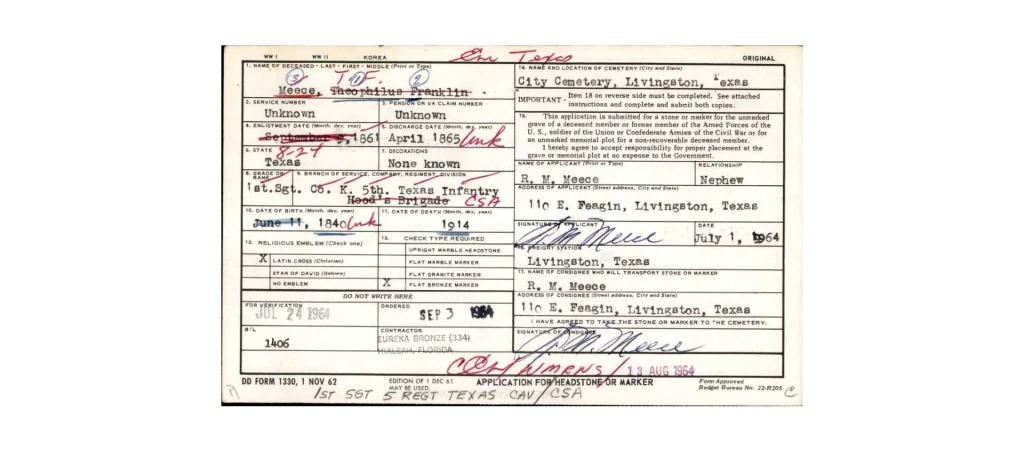 WW I WW II KOREA Em Texas ORIGINAL
1. NAME OF DECEASED - LAST - FIRST - MIDDLE (Print or Type)
3 T. 1 F. 2
Meece, Theophilus Franklin
2. SERVICE NUMBER
Unknown
3. PENSION OR VA CLAIM NUMBER
Unknown
4. ENLISTMENT DATE (Month, day, year)
September 9, 1861
5. DISCHARGE DATE (Month, day, year)
April 1865 Unk
6. STATE 8-24
Texas
7. DECORATIONS
None known
8. GRADE OR RANK
9. BRANCH OF SERVICE, COMPANY, REGIMENT, DIVISION
1st.Sgt. Co. K. 5th. Texas Infantry
Hood's Brigade CSA
10. DATE OF BIRTH (Month, day, year)
June 11, 1840 Unk
11. DATE OF DEATH (Month, day, year)
1914
12. RELIGIOUS EMBLEM (Check one)
X LATIN CROSS (Christian)
STAR OF DAVID (Hebrew)
NO EMBLEM
13. CHECK TYPE REQUIRED
UPRIGHT MARBLE HEADSTONE
FLAT MARBLE MARKER
FLAT GRANITE MARKER
X FLAT BRONZE MARKER
DO NOT WRITE HERE
FOR VERIFICATION
JUL 24 1964
ORDERED
SEP 3 1964
B/L
1406
CONTRACTOR
EUREKA BRONZE (334)
HIALEAH, FLORIDA
14. NAME AND LOCATION OF CEMETERY (City and State)
City Cemetery, Livingston, Texas
IMPORTANT - Item 18 on reverse side must be completed. See attached
instructions and complete and submit both copies.
15. This application is submitted for a stone or marker for the unmarked
grave of a deceased member or former member of the Armed Forces of the
U. S., soldier of the Union or Confederate Armies of the Civil War or for
an unmarked memorial plot for a non-recoverable deceased member.
I hereby agree to accept responsibility for proper placement at the
grave or memorial plot at no expense to the Government.
NAME OF APPLICANT (Print or Type)
R. M. Meece
RELATIONSHIP
Nephew
ADDRESS OF APPLICANT (Street address, City and State)
110 E. Feagin, Livingston, Texas
SIGNATURE OF APPLICANT
R. M. Meece
DATE
July 1, 1964
16. FREIGHT STATION
Livingston, Texas
17. NAME OF CONSIGNEE WHO WILL TRANSPORT STONE OR MARKER
R. M. Meece
ADDRESS OF CONSIGNEE (Street address, City and State)
110 E. Feagin, Livingston, Texas
I HAVE AGREED TO TAKE THE STONE OR MARKER TO THE CEMETERY.
SIGNATURE OF CONSIGNEE
R. M. Meece
13 AUG 1964
DD FORM 1330, 1 NOV 62
EDITION OF 1 DEC 61
MAY BE USED.
APPLICATION FOR HEADSTONE OR MARKER
Form Approved
Budget Bureau No. 22-R205
1ST SGT 5 REGT TEXAS CAV/CSA